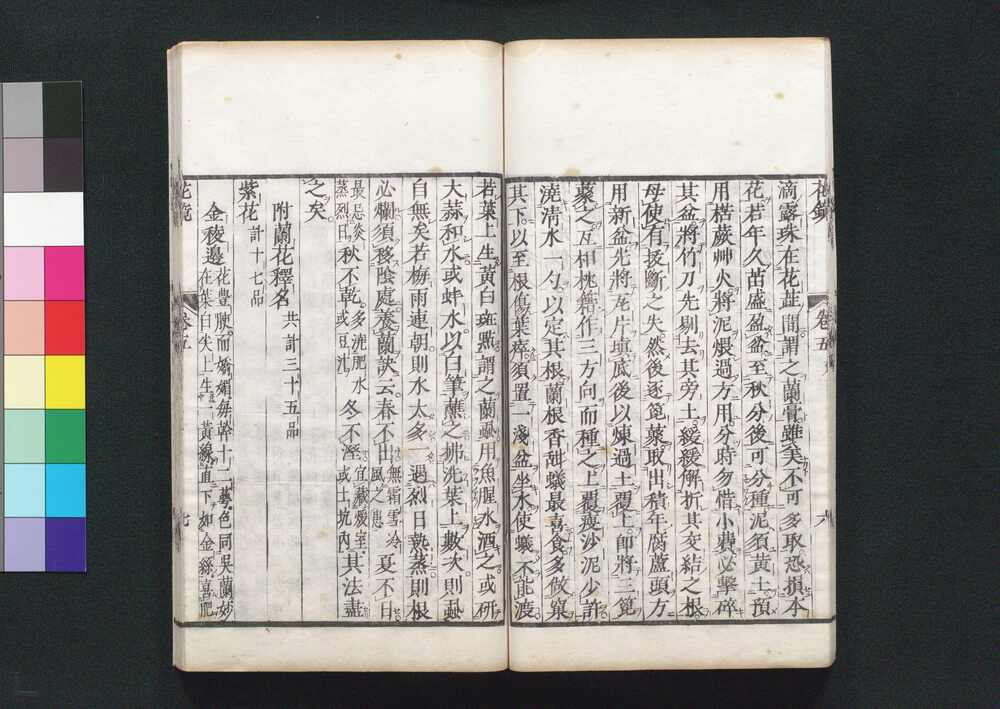 滴露珠在花蕋間謂之蘭膏雖美不可多取恐損本
花若年久苗盛盈盆至秋分後可分種泥須黃土預
用楷蕨艸火將泥煅過方用分時勿惜小費必擊碎
其盆將竹刀先剔去其旁土緩緩解折其交結之根
母使有拔斷之失然後逐箆蓌取出積年腐蘆頭方
用新盆先將瓦片填底後以煉過土覆上卽將三箆
蓌之互相枕籍作三方向而種之上覆瘦沙泥少許
澆清水一勺以定其根蘭根香甜蟻最喜食多做窠
其下以至根傷葉瘁須置一淺盆坐水使蟻不能渡
卷五
六
若葉上生黃白斑點謂之蘭蝨用魚腥水洒之或研
大蒜和水或蚌水以白筆蘸之拂洗葉上數次則蝨
自無矣若梅雨連朝則水太多一遇烈日熟蒸則根
必爛須移陰處養蘭訣云春不出無霜雪冷風之患宜藏煖室夏不日
最忌炎蒸烈日秋不乾多澆肥水或豆汁冬不溼或土坑內其法盡
之矣
附蘭花釋名共計三十五品
紫花計十七品
金稜邊花豊腴而嬌媚每幹十二蕚色同吳蘭妙
在葉自尖上生一黃線直下如金絲喜肥
花鏡
卷五
七